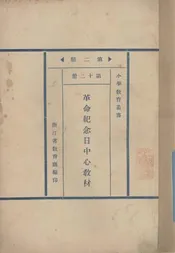 小學教育叢書
第二類
第十二冊
革命紀念日中心教材
浙江省教育廳編印